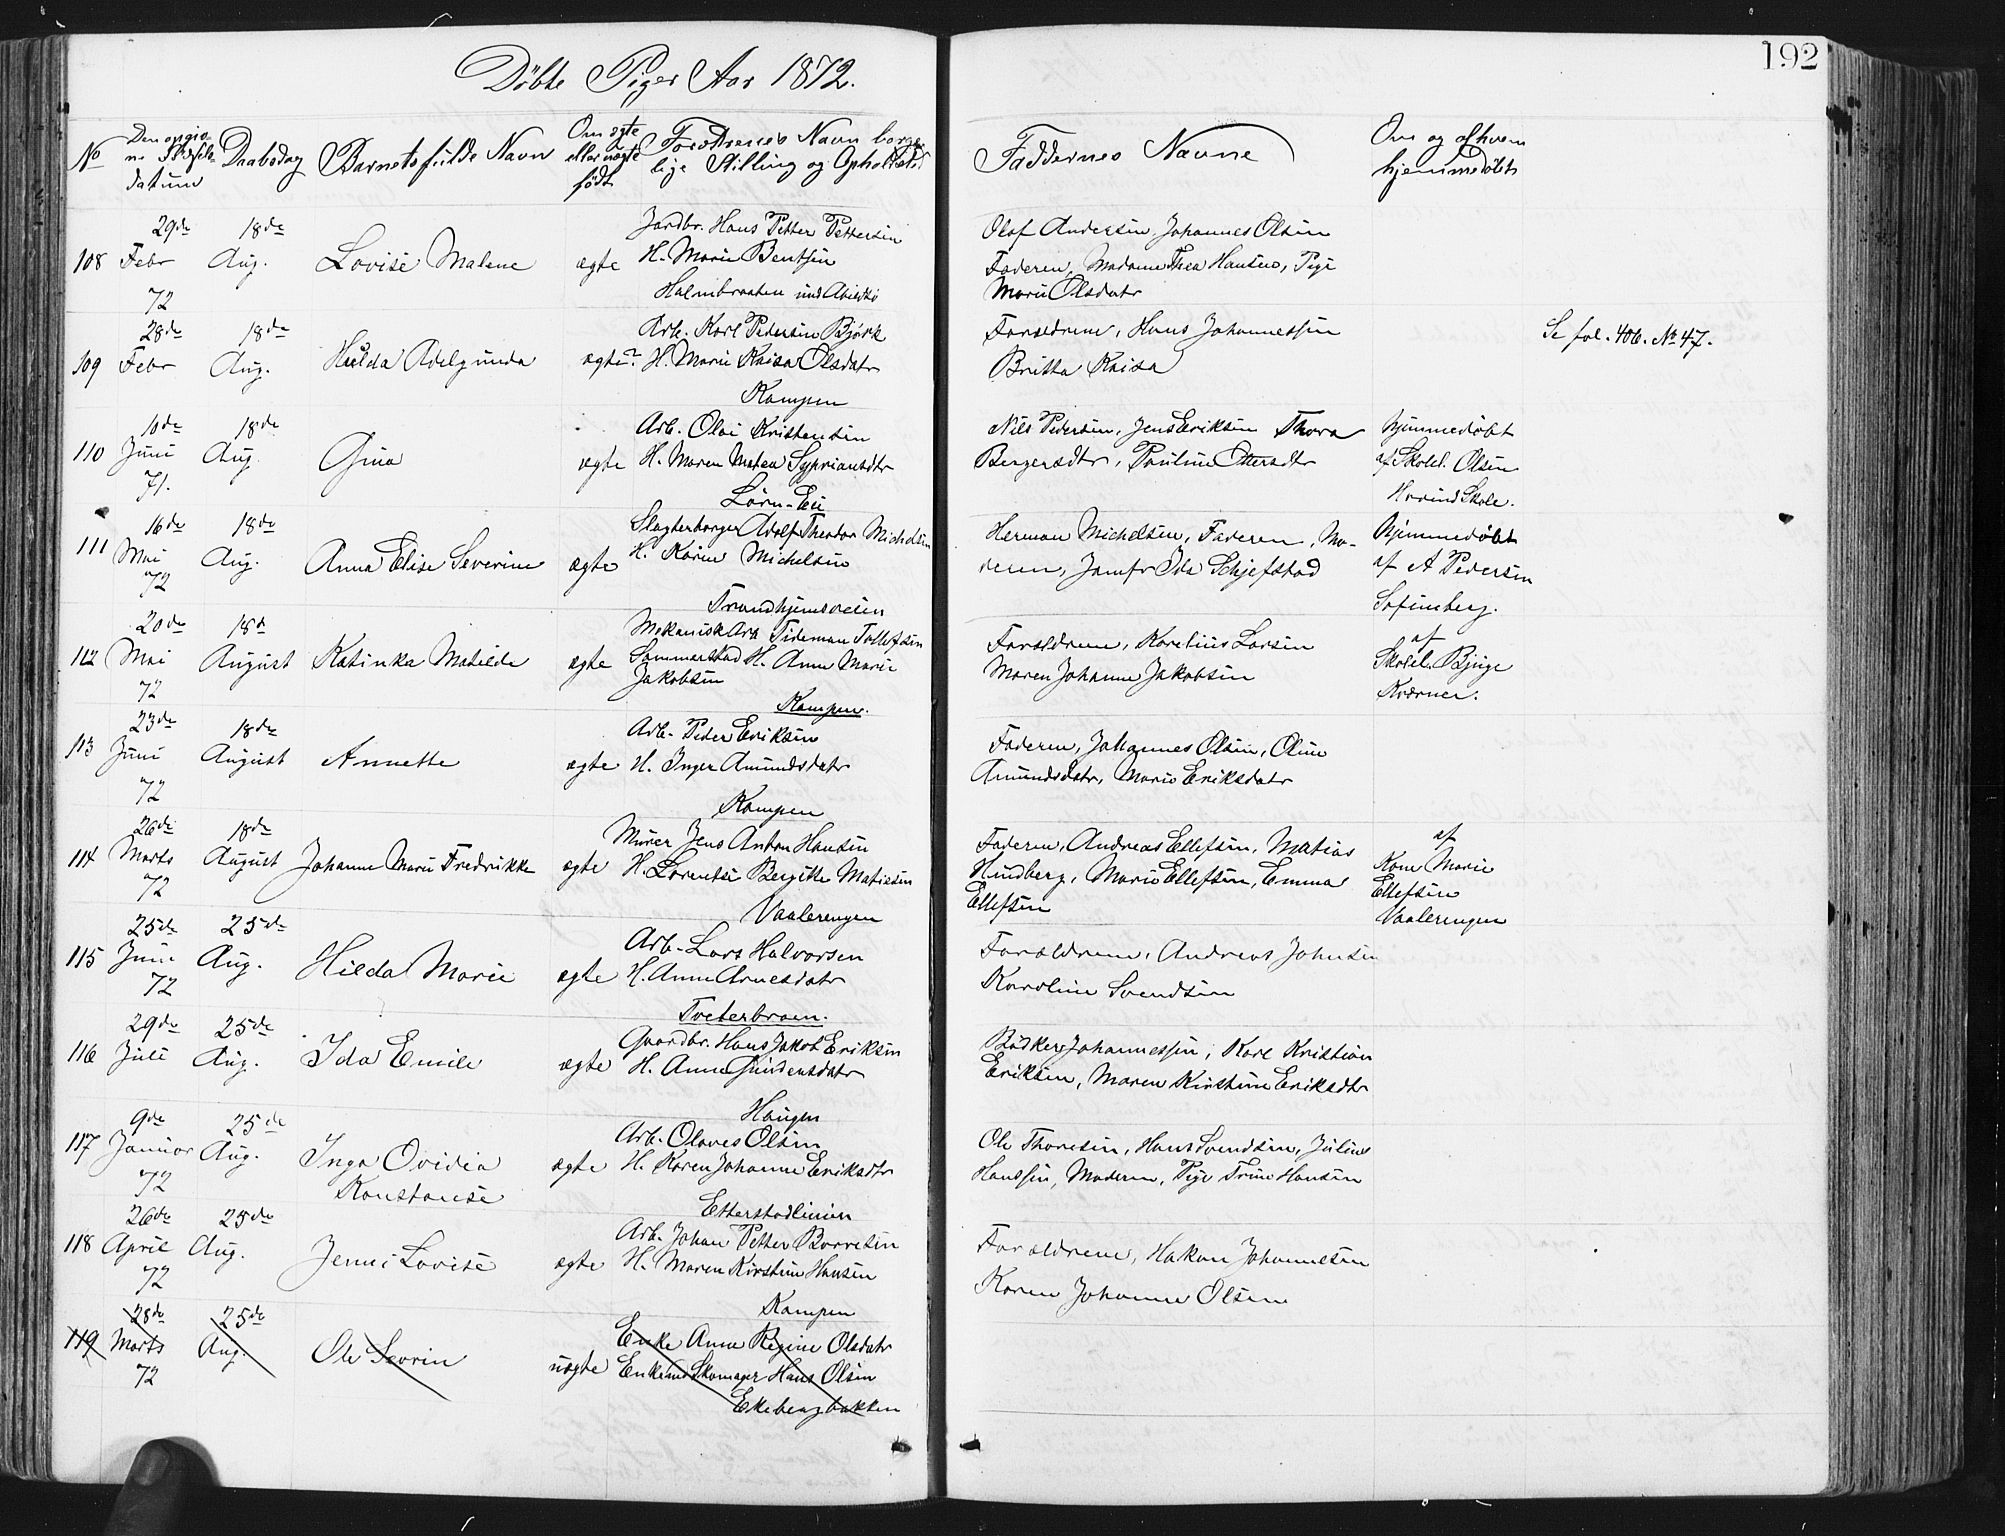 192
Döbte Piger Aar 1872.
No Den angivne Födselsdatum Daabsdag Barnets fulde Navn Om ægte eller uægte födt Forældrenes Navn borgerlige Stilling og Opholdssted Faddernes Navne Om og af hvem hjemmedöbt
108 29de Febr 72 18de Aug. Lovise Malene ægte Jordbr. Hans Petter Pettersen
H. Marie Bentsen
Malmbraaten
Olaf Andersen, Johannes Olsen
Faderen, Madame Thea Hansen, Pige
Marie Olsdatr
109 28de Febr 18de Aug. Hilda Adelgunda ægte? Arb. Karl Pedersen Björk
H. Marie Kaisa Olsdatr
Kampen
Forældrene, Hans Johannessen
Britta Kaisa
Se fol. 406. No 47.
110 10de Juni 71. 18de Aug Gina ægte Arb. Olai Kristensen
H. Maren Matea Sypriansdtr
Nils Pedersen, Jens Eriksen Thora
Bergersdtr, Pauline Ottersdtr
hjemmedöbt
af Skolel. Olsen
Hovind Skole.
111 16de Mai 72 18de Aug. Anna Elise Severine ægte Slagterborger Adolf Theodor Michelsen
H. Karen Michelsen
Trondhjemsveien
Herman Michelsen, Faderen, Mo-
deren, Jomfr Ida Schjefstad
hjemmedöbt
af A Pedersen
Sofienberg.
112 20de Mai 72 18d August Katinka Matilde ægte Mekanisk Arb Tideman Tollefsen
Sommerstad H. Anne Marie
Jakobsen
Kampen.
Forældrene, Karelius Larsen
Maren Johanne Jakobsen
af
Skolel. Bjuge
Kværner.
113 23de Juni 72 18de August Annette ægte Arb. Peder Eriksen
H. Inger Amundsdatr
Kampen
Faderen, Johannes Olsen, Oline
Amundsdatr, Marie Eriksdatr
114 26de Marts 72 18de August Johanne Marie Fredrikke ægte Murer Jens Anton Hansen
H. Lorentse Bergitte Matiesen
Vaalerengen
Faderen, Andreas Ellefsen, Matias
Hundberg, Marie Ellefsen, Emma
Ellefsen
af
Kone Marie
Ellefsen
Vaalerengen
115 25de Juni 72 25de Aug. Hilda Marie ægte Arb. Lars Halvorsen
H. Anne Arnesdatr
Tveterbraaen.
Forældrene, Andreas Johnsen
Karoline Svendsen
116 29de Juli 25de Aug. Ida Emile ægte Gaardbr. Hans Jakob Eriksen
H. Anne Gundersdatr
Haugen
Bödker Johannessen, Karl Kristian
Eriksen, Maren Kirstine Eriksdtr
117 9de Januar 72 25de Aug. Inga Ovidia
Konstanse ægte Arb. Olaves Olsen
H. Karen Johanne Eriksdtr
Etterstadlinien
Ole Thoresen, Hans Svendsen, Julius
Hanssen, Moderen, Pige Trine Hansen
118 26de April 72 25de Aug. Jenni Lovise ægte Arb. Johan Petter Borresen
H. Maren Kirstine Hansen
Kampen
Forældrene, Hakon Johannesen
Karen Johanne Olsen
119 28de Marts 72 25de Aug. Ole Severin uægte Enke Anne Regine Olsdatr
Enkemd Skomager Hans Olsen
Ekebergbakken